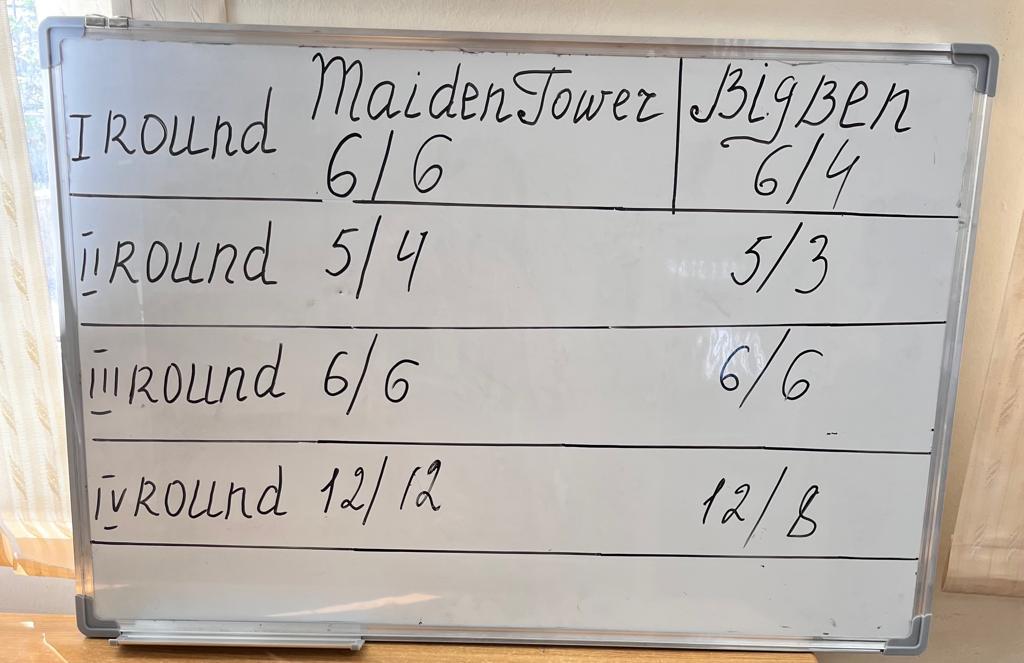 I ROUnd Maiden Tower Big Ben
6/6 6/4
II ROUnd 5/4 5/3
III ROUnd 6/6 6/6
IV ROUnd 12/12 12/8